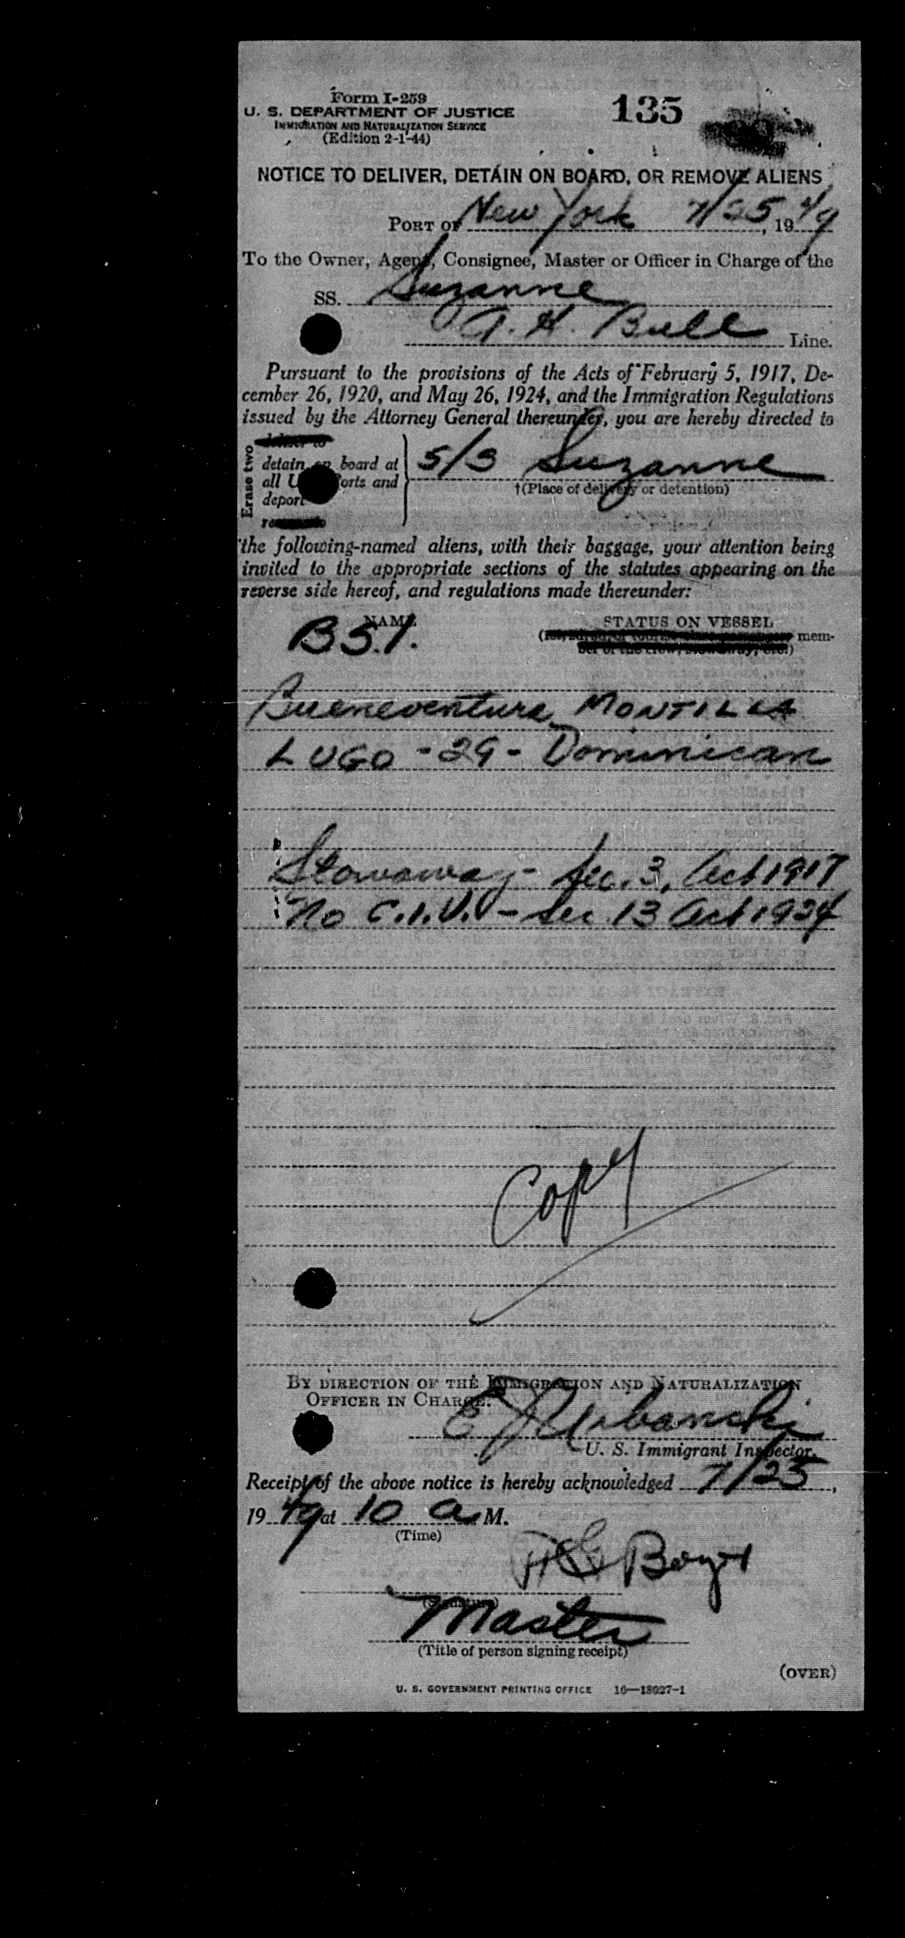 Form I-259
135
U. S. DEPARTMENT OF JUSTICE
IMMIGRATION AND NATURALIZATION SERVICE
(Edition 2-1-44)
NOTICE TO DELIVER, DETAIN ON BOARD, OR REMOVE ALIENS
PORT OF New York 7/25, 1949
To the Owner, Agent, Consignee, Master or Officer in Charge of the
SS. Suzanne
A. H. Bull Line.
Pursuant to the provisions of the Acts of February 5, 1917, De-
cember 26, 1920, and May 26, 1924, and the Immigration Regulations
issued by the Attorney General thereunder, you are hereby directed to
Erase two
deliver to
detain on board at
all U. ports and
deport
S/S Suzanne
†(Place of delivery or detention)
the following-named aliens, with their baggage, your attention being
invited to the appropriate sections of the statutes appearing on the
reverse side hereof, and regulations made thereunder:
NAME
STATUS ON VESSEL
BSI.
mem-
ber of the crew, stowaway, etc.)
Bueneventura MONTILLA
LUGO - 29 - Dominican
Stowaway - Sec. 3, Act 1917
No C.I.V. - Sec 13 Act 1924
Copy
BY DIRECTION OF THE IMMIGRATION AND NATURALIZATION
OFFICER IN CHARGE.
E J Urbanski
U. S. Immigrant Inspector.
Receipt of the above notice is hereby acknowledged 7/25,
1949 at 10 a M.
(Time)
(Signature)
Master
(Title of person signing receipt)
(OVER)
U. S. GOVERNMENT PRINTING OFFICE 16—18027-1